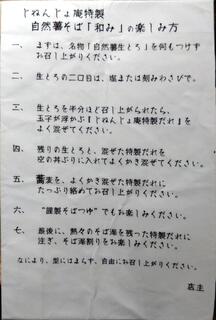 じねんじょ庵特製
自然薯そば「和み」の楽しみ方
一、まずは、名物「自然薯生とろ」を何もつけず
お召し上がりください。
二、生とろの二口目は、塩または刻みわさびで。
三、生とろを半分ほど召し上がられたら、
玉子が浮かぶ『じねんじょ庵特製だれ』を
よく混ぜてください。
四、残りの生とろと、混ぜた特製だれを
空の丼ぶりに入れてよくかき混ぜてください。
五、蕎麦を、よくかき混ぜた特製だれに
たっぷり絡めてお召し上がりください。
六、“謹製そばつゆ”でもお楽しみください。
七、最後に、熱々のそば湯を残った特製だれに
注ぎ、そば湯割りをお楽しみください。
なにより、型にはまらず、自由にお召し上がりください。
店主